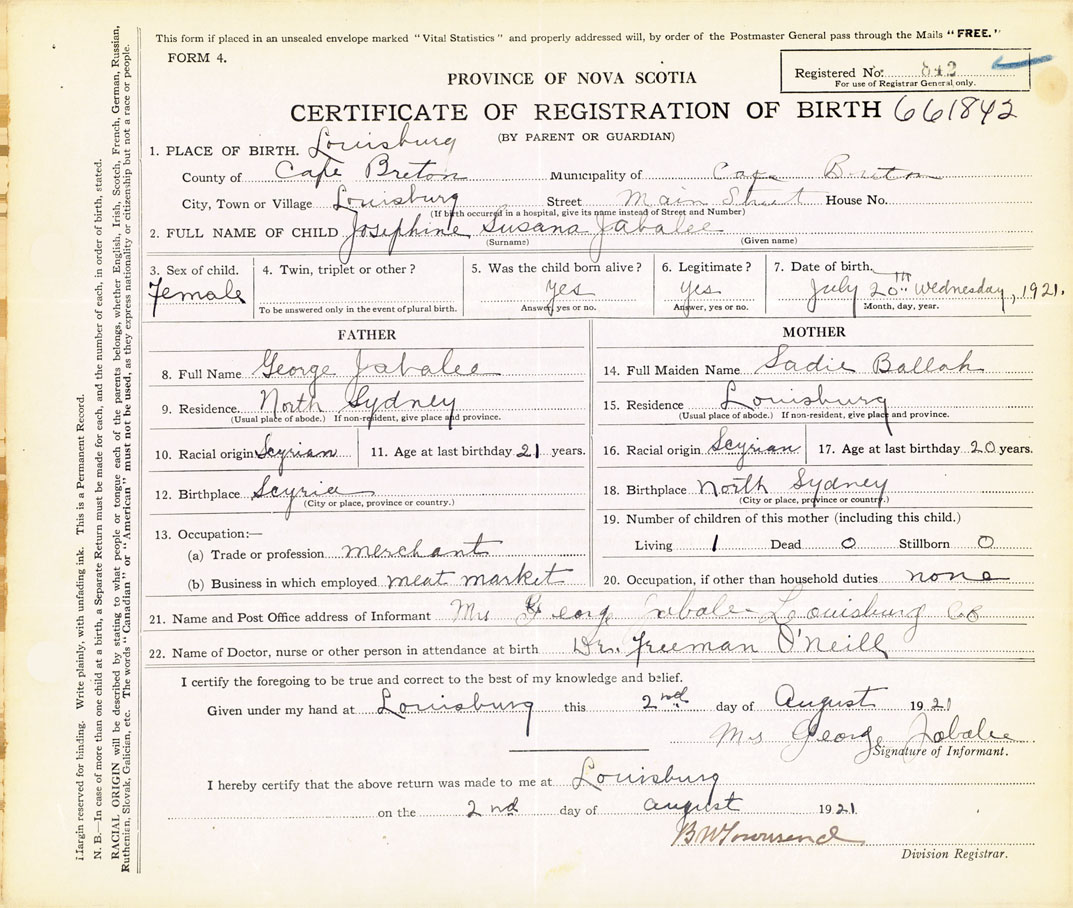 This form if placed in an unsealed envelope marked "Vital Statistics" and properly addressed will, by order of the Postmaster General pass through the Mails "FREE."
FORM 4.
Registered No: 842
For use of Registrar General only.
PROVINCE OF NOVA SCOTIA
CERTIFICATE OF REGISTRATION OF BIRTH 661842
(BY PARENT OR GUARDIAN)
1. PLACE OF BIRTH. Louisburg
County of Cape Breton Municipality of Cape Breton
City, Town or Village Louisburg Street Main Street House No.
(If birth occurred in a hospital, give its name instead of Street and Number)
2. FULL NAME OF CHILD Josephine Susana Jabalee
(Surname) (Given name)
3. Sex of child. 4. Twin, triplet or other? 5. Was the child born alive? 6. Legitimate? 7. Date of birth.
Female Yes Yes July 20th Wednesday, 1921.
To be answered only in the event of plural birth. Answer, yes or no. Answer, yes or no. Month, day, year.
FATHER
8. Full Name George Jabalee
9. Residence. North Sydney
(Usual place of abode.) If non-resident, give place and province.
10. Racial origin Scyrian 11. Age at last birthday 21 years.
12. Birthplace Scyria
(City or place, province or country.)
13. Occupation:—
(a) Trade or profession merchant
(b) Business in which employed meat market
MOTHER
14. Full Maiden Name Sadie Ballah
15. Residence Louisburg
(Usual place of abode.) If non-resident, give place and province.
16. Racial origin Scyrian 17. Age at last birthday 20 years.
18. Birthplace North Sydney
(City or place, province or country.)
19. Number of children of this mother (including this child.)
Living 1 Dead 0 Stillborn 0
20. Occupation, if other than household duties none
21. Name and Post Office address of Informant Mrs George Jabalee Louisburg CB
22. Name of Doctor, nurse or other person in attendance at birth Dr. Freeman O'Neill
I certify the foregoing to be true and correct to the best of my knowledge and belief.
Given under my hand at Louisburg this 2nd day of August 1921
Mrs George Jabalee
Signature of Informant.
I hereby certify that the above return was made to me at Louisburg
on the 2nd day of August 1921
B W Townsend
Division Registrar.
Margin reserved for binding. Write plainly, with unfading ink. This is a Permanent Record.
N. B.—In case of more than one child at a birth, a Separate Return must be made for each, and the number of each, in order of birth, stated.
RACIAL ORIGIN will be described by stating to what people or tongue each of the parents belongs, whether English, Irish, Scotch, French, German, Russian,
Ruthenian, Slovak, Galician, etc. The words "Canadian" or "American" must not be used, as they express nationality or citizenship but not a race or people.